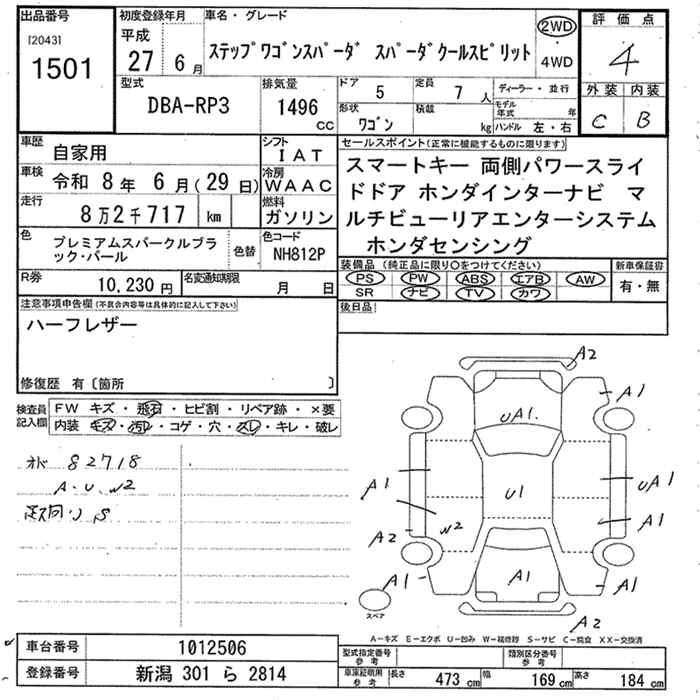 出品番号
[2043]
1501
初度登録年月
平成
27 6月
車名・グレード
ステップワゴンスパーダ スパーダクールスピリット
2WD
・
4WD
評価点
4
外装 内装
C B
型式
DBA-RP3
排気量
1496
cc
ドア 5
定員 7人
形状 ワゴン
積載 kg
ディーラー・並行
モデル年式 年
ハンドル 左・右
車歴
自家用
シフト
IAT
車検
令和 8年 6月(29日)
冷房
WAAC
走行
8万2千717 km
燃料
ガソリン
色
プレミアムスパークルブラック・パール
色替
色コード
NH812P
R券
10,230円
名変通知期限
月 日
セールスポイント(正常に機能するものに限ります)
スマートキー 両側パワースライ
ドドア ホンダインターナビ マ
ルチビューリアエンターシステム
ホンダセンシング
装備品(純正品に限り○をつけてください)
PS PW ABS エアB AW
SR ナビ TV カワ
新車保証書
有・無
後日品
注意事項申告欄(不具合内容等は具体的に記入して下さい)
ハーフレザー
修復歴 有〔箇所 〕
検査員記入欄
FW キズ・飛石・ヒビ割・リペア跡・×要
内装 キズ・汚れ・コゲ・穴・スレ・キレ・破レ
82718
A・U、W2
A2
A1
UA1.
A1
UA1
U1
A1
A2
W2
A1
A1
A1
A2
スペア
A-キズ E-エクボ U-凹み W-補修跡 S-サビ C-腐食 XX-交換済
車台番号
1012506
登録番号
新潟 301 ら 2814
型式指定番号
参考
類別区分番号
参考
車庫証明用
参考
長さ 473cm
幅 169cm
高さ 184cm